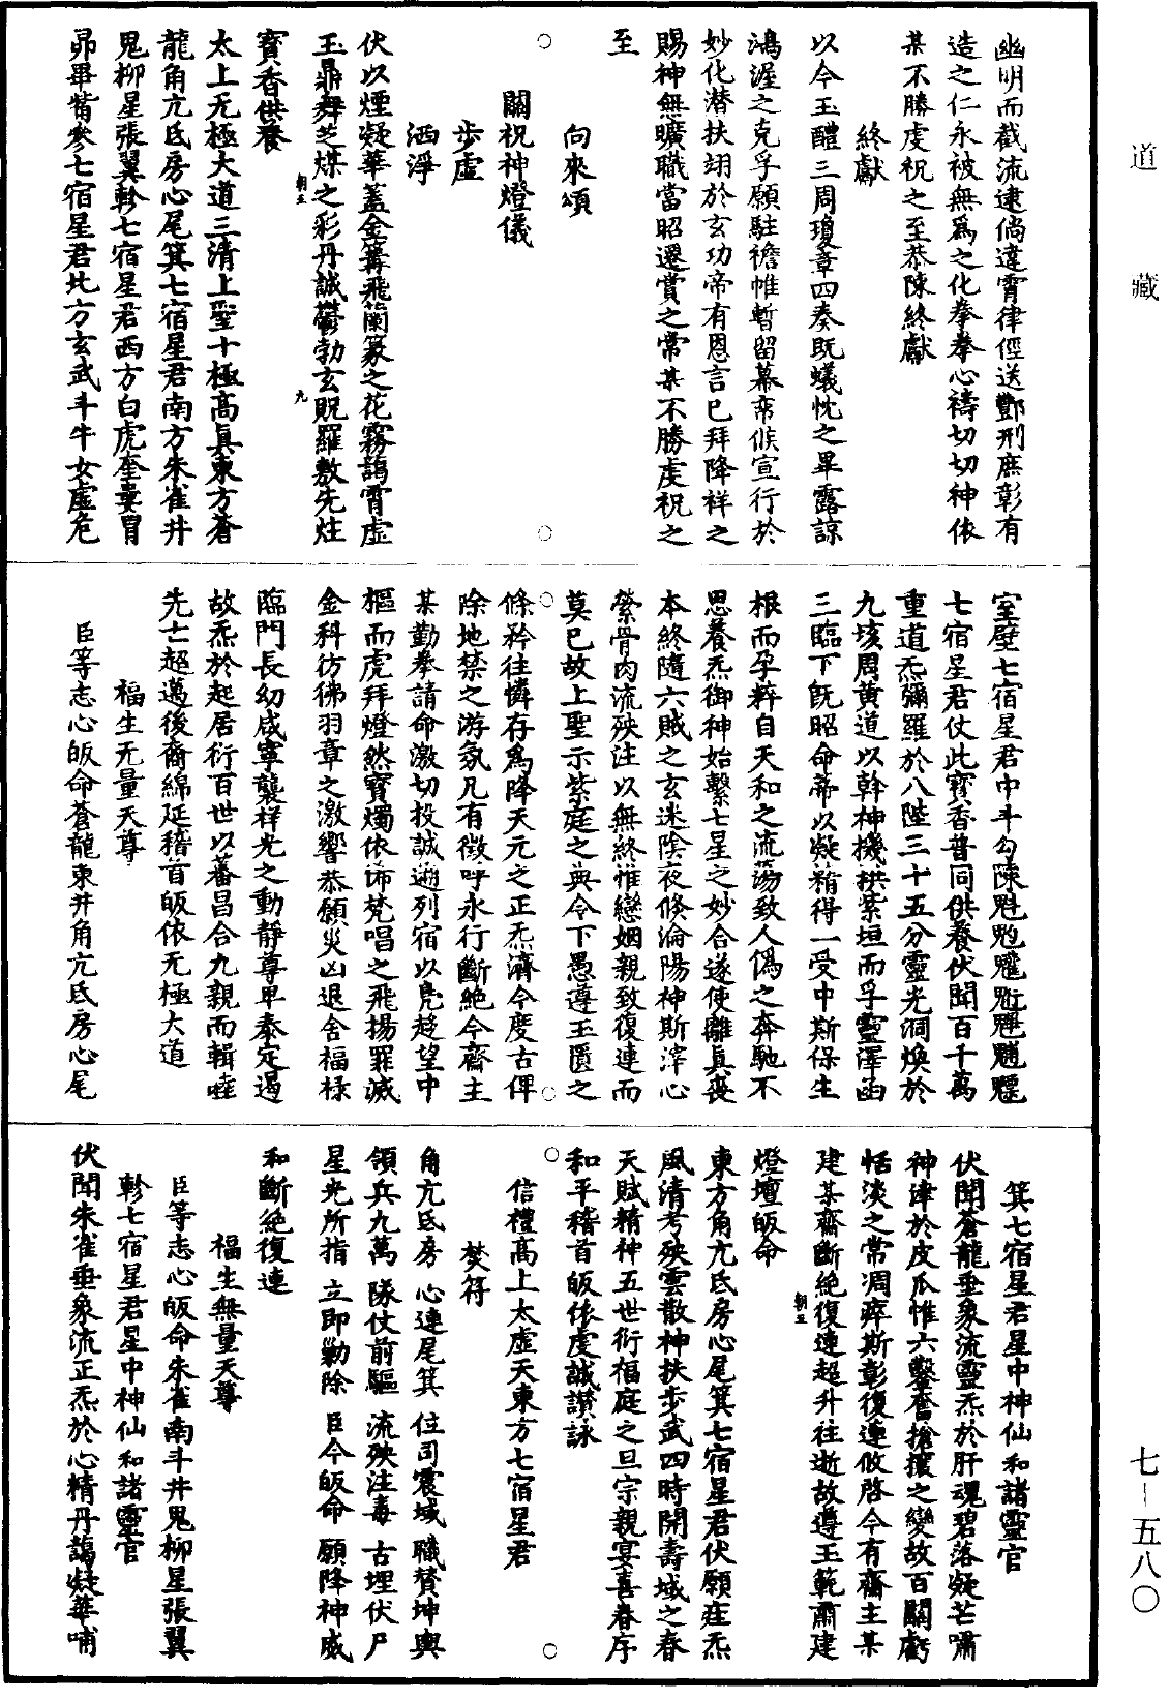 道藏
幽明而截流逮倘違霄律俓送酆刑庶彰有
造之仁永被無爲之化拳拳心禱切切神依
某不勝虔祝之至恭陳終獻
終獻
以今玉醴三周瓊章四奏既蟻忱之畢露諒
鴻渥之克孚願駐襜帷暫留幕帟倏宣行於
妙化潜扶翊於玄功帝有恩言已拜降祥之
賜神無曠職當昭遷賞之常某不勝虔祝之
至
向來頌
關祝神燈儀
步虛
洒淨
伏以煙凝華蓋金篝飛蘭篆之花霧藹霄虛
玉鼎舞芝煤之彩丹誠鬱勃玄貺羅敷先炷
寳香供養
太上无極大道三清上聖十極高真東方蒼
龍角亢氐房心尾箕七宿星君南方朱雀井
鬼柳星張翼軫七宿星君西方白虎奎婁胃
昴畢觜參七宿星君北方玄武斗牛女虛危
室壁七宿星君中斗勾陳魁𩲃䰢魓䰡魒魑
七宿星君仗此寳香普同供養伏聞百千萬
重道炁彌羅於八陛三十五分靈光洞煥於
九垓周黃道以幹神機拱紫垣而孚靈澤函
三臨下旣昭命蒂以凝精得一受中斯保生
根而孕粹自天和之流蕩致人僞之奔馳不
思養炁御神始繫七星之妙合遂使離真喪
本終隨六賊之玄迷陰夜倏淪陽神斯滓心
縈骨肉流殃注以無終惟戀姻親致復連而
莫已故上聖示紫庭之典令下愚遵玉匱之
條矜往憐存爲降天元之正炁濟今度古俾
除地禁之游氛凡有徵呼永行斷絕今齋主
某勤拳請命激切投誠遡列宿以凫趍望中
樞而虎拜燈然寳燭依俙梵唱之飛揚罪滅
金科彷彿羽章之激響恭願災凶退舍福禄
臨門長幼咸寧襲祥光之動靜尊卑泰定遏
故炁於起居衍百世以蕃昌合九親而輯睦
先亡超邁後裔綿延稽首皈依无極大道
福生无量天尊
臣等志心皈命蒼龍東井角亢氐房心尾
箕七宿星君星中神仙和諸靈官
伏聞蒼龍垂象流靈炁於肝魂碧落凝芒嘯
神津於皮爪惟六鑿奮搶攘之變故百關虧
恬淡之常凋瘁斯彰復連攸啓今有齋主某
建某齋斷絕復連超升往逝故遵玉範肅建
燈壇皈命
東方角亢氐房心尾箕七宿星君伏願莛炁
風清考殃雲散神扶步武四時開壽域之春
天賦精神五世衍福庭之旦宗親宴喜春序
和平稽首皈依虔誠讃詠
信禮高上太虛天東方七宿星君
焚符
角亢氐房 心連尾箕 位司震域 職賛坤輿
領兵九萬 隊仗前驅 流殃注毒 古埋伏尸
星光所指 立即勦除 臣今皈命 願降神威
和斷絕復連
福生無量天尊
臣等志心皈命朱雀南斗井鬼柳星張翼
軫七宿星君星中神仙和諸靈官
伏聞朱雀垂象流正炁於心精丹藹凝華哺
七－五八〇